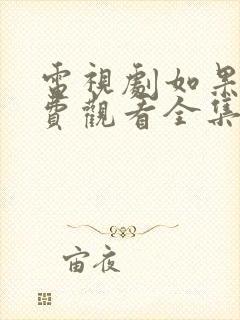 電視劇如果
費觀看全集
宙夜